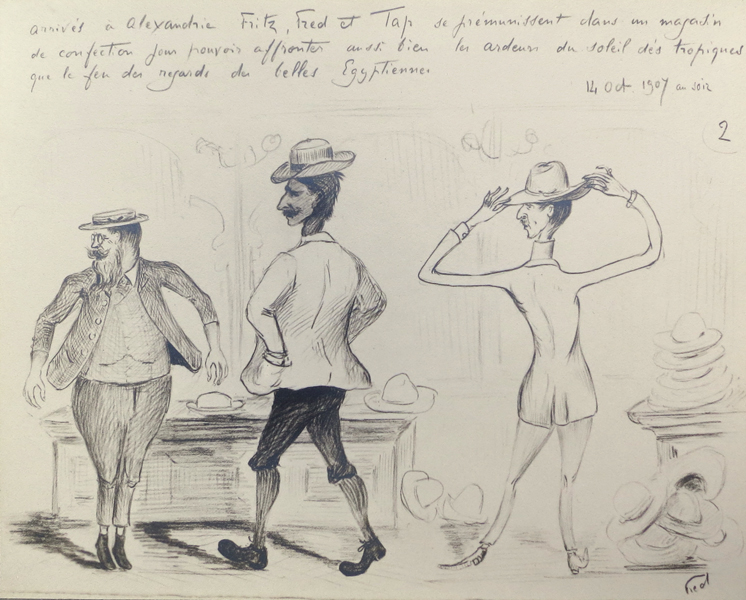 arrivés à Alexandrie Fritz, Fred et Tap se prémunissent dans un magasin
de confection pour pouvoir affronter aussi bien les ardeurs du soleil des tropiques
que le feu des regards des belles Egyptiennes
14 Oct. 1907 au soir
2
Fred